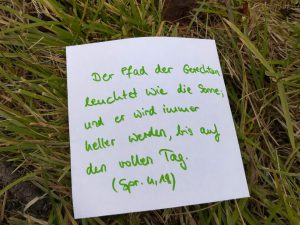 Der Pfad der Gerechten
leuchtet wie die Sonne,
und er wird immer
heller werden, bis auf
den vollen Tag.
(Spr. 4,18)